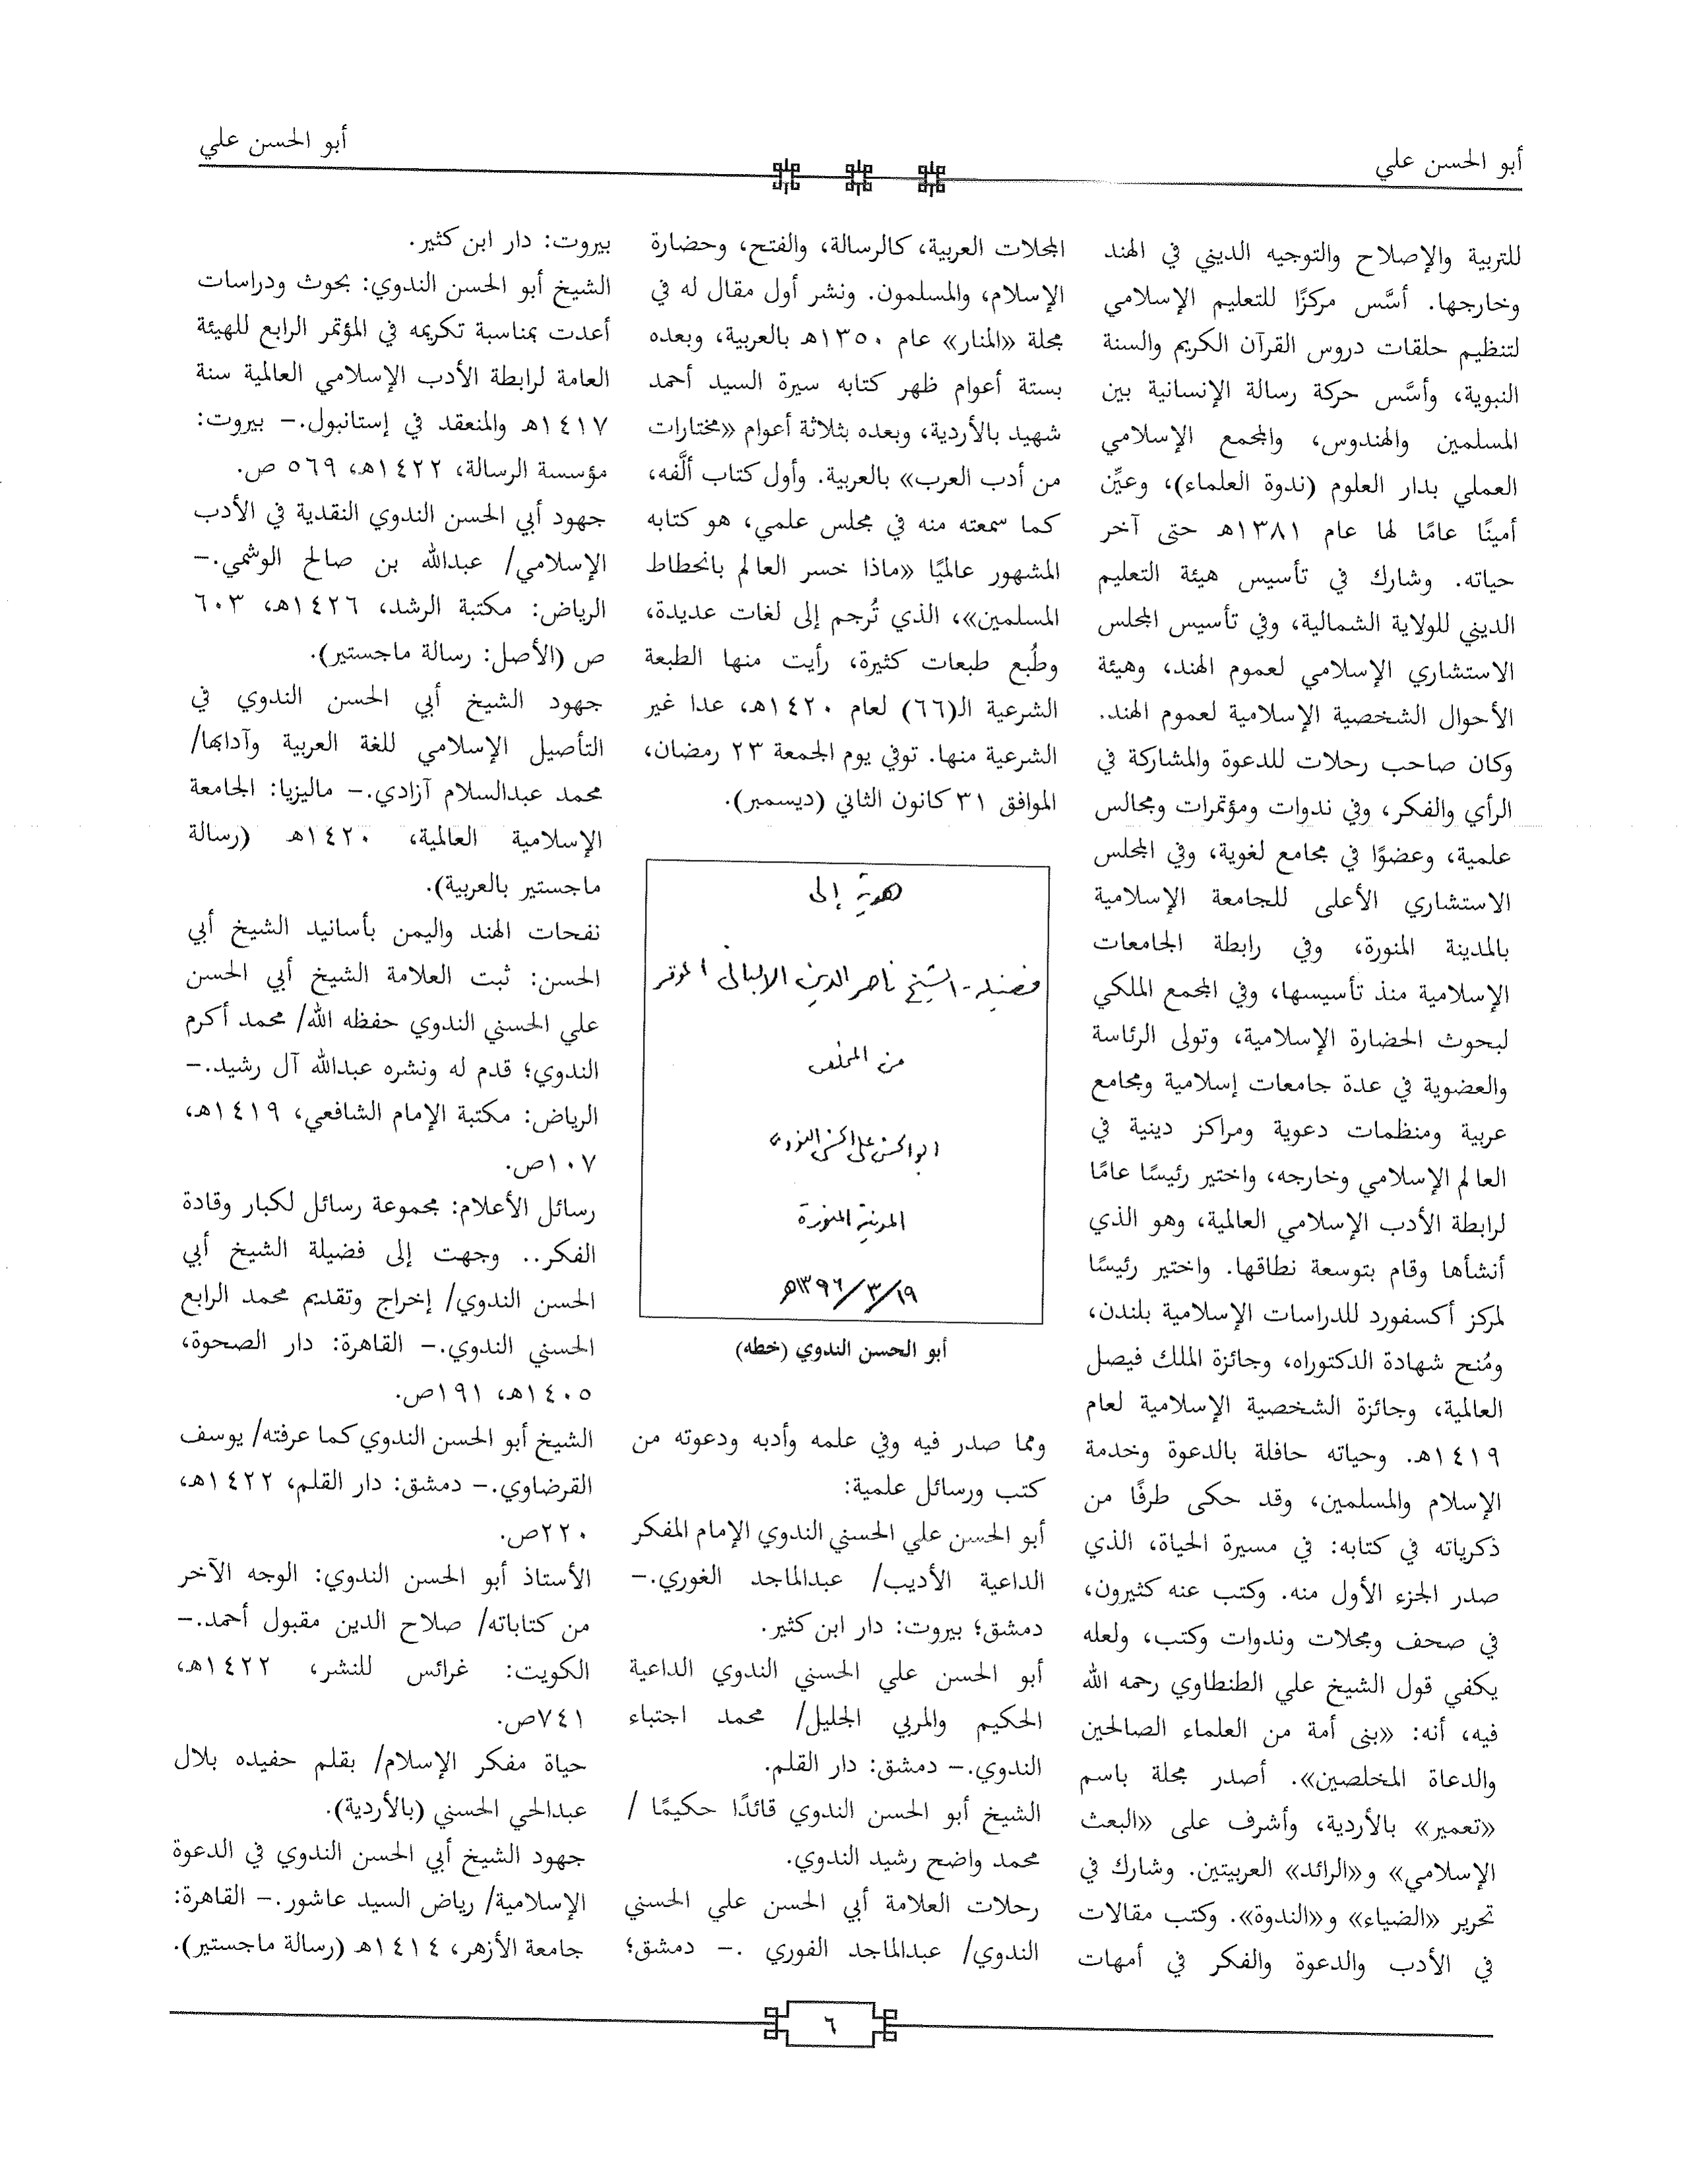 أبو الحسن علي
أبو الحسن علي
للتربية والإصلاح والتوجيه الديني في الهند
وخارجها. أسَّس مركزًا للتعليم الإسلامي
لتنظيم حلقات دروس القرآن الكريم والسنة
النبوية، وأسَّس حركة رسالة الإنسانية بين
المسلمين والهندوس، والمجمع الإسلامي
العملي بدار العلوم (ندوة العلماء)، وعيِّن
أمينًا عامًا لها عام ١٣٨١هـ حتى آخر
حياته. وشارك في تأسيس هيئة التعليم
الديني للولاية الشمالية، وفي تأسيس المجلس
الاستشاري الإسلامي لعموم الهند، وهيئة
الأحوال الشخصية الإسلامية لعموم الهند.
وكان صاحب رحلات للدعوة والمشاركة في
الرأي والفكر، وفي ندوات ومؤتمرات ومجالس
علمية، وعضوًا في مجامع لغوية، وفي المجلس
الاستشاري الأعلى للجامعة الإسلامية
بالمدينة المنورة، وفي رابطة الجامعات
الإسلامية منذ تأسيسها، وفي المجمع الملكي
لبحوث الحضارة الإسلامية، وتولى الرئاسة
والعضوية في عدة جامعات إسلامية ومجامع
عربية ومنظمات دعوية ومراكز دينية في
العالم الإسلامي وخارجه، واختير رئيسًا عامًا
لرابطة الأدب الإسلامي العالمية، وهو الذي
أنشأها وقام بتوسعة نطاقها. واختير رئيسًا
لمركز أكسفورد للدراسات الإسلامية بلندن،
ومُنح شهادة الدكتوراه، وجائزة الملك فيصل
العالمية، وجائزة الشخصية الإسلامية لعام
١٤١٩هـ. وحياته حافلة بالدعوة وخدمة
الإسلام والمسلمين، وقد حكى طرفًا من
ذكرياته في كتابه: في مسيرة الحياة، الذي
صدر الجزء الأول منه. وكتب عنه كثيرون،
في صحف ومجلات وندوات وكتب، ولعله
يكفي قول الشيخ علي الطنطاوي رحمه الله
فيه، أنه: «بنى أمة من العلماء الصالحين
والدعاة المخلصين». أصدر مجلة باسم
«تعمير» بالأردية، وأشرف على «البعث
الإسلامي» و«الرائد» العربيتين. وشارك في
تحرير «الضياء» و«الندوة». وكتب مقالات
في الأدب والدعوة والفكر في أمهات
المجلات العربية، كالرسالة، والفتح، وحضارة
الإسلام، والمسلمون. ونشر أول مقال له في
مجلة «المنار» عام ١٣٥٠هـ بالعربية، وبعده
بستة أعوام ظهر كتابه سيرة السيد أحمد
شهيد بالأردية، وبعده بثلاثة أعوام «مختارات
من أدب العرب» بالعربية. وأول كتاب ألَّفه،
كما سمعته منه في مجلس علمي، هو كتابه
المشهور عالميًا «ماذا خسر العالم بانحطاط
المسلمين»، الذي تُرجم إلى لغات عديدة،
وطُبع طبعات كثيرة، رأيت منها الطبعة
الشرعية الـ(٦٦) لعام ١٤٢٠هـ، عدا غير
الشرعية منها. توفي يوم الجمعة ٢٣ رمضان،
الموافق ٣١ كانون الثاني (ديسمبر).
هدية إلى
فضيلة الشيخ ناصر الدين الالباني الموقر
من المخلص
ابو الحسن علي الحسني الندوي
المدينة المنورة
١٩/٣/١٣٩٦هـ
أبو الحسن الندوي (خطه)
ومما صدر فيه وفي علمه وأدبه ودعوته من
كتب ورسائل علمية:
أبو الحسن علي الحسني الندوي الإمام المفكر
الداعية الأديب/ عبدالماجد الغوري.-
دمشق؛ بيروت: دار ابن كثير.
أبو الحسن علي الحسني الندوي الداعية
الحكيم والمربي الجليل/ محمد اجتباء
الندوي.- دمشق: دار القلم.
الشيخ أبو الحسن الندوي قائدًا حكيمًا /
محمد واضح رشيد الندوي.
رحلات العلامة أبي الحسن علي الحسني
الندوي/ عبدالماجد الفوري .- دمشق؛
بيروت: دار ابن كثير.
الشيخ أبو الحسن الندوي: بحوث ودراسات
أعدت بمناسبة تكريمه في المؤتمر الرابع للهيئة
العامة لرابطة الأدب الإسلامي العالمية سنة
١٤١٧هـ والمنعقد في إستانبول.- بيروت:
مؤسسة الرسالة، ١٤٢٢هـ، ٥٦٩ ص.
جهود أبي الحسن الندوي النقدية في الأدب
الإسلامي/ عبدالله بن صالح الوشمي.-
الرياض: مكتبة الرشد، ١٤٢٦هـ، ٦٠٣
ص (الأصل: رسالة ماجستير).
جهود الشيخ أبي الحسن الندوي في
التأصيل الإسلامي للغة العربية وآدابها/
محمد عبدالسلام آزادي.- ماليزيا: الجامعة
الإسلامية العالمية، ١٤٢٠هـ (رسالة
ماجستير بالعربية).
نفحات الهند واليمن بأسانيد الشيخ أبي
الحسن: ثبت العلامة الشيخ أبي الحسن
علي الحسني الندوي حفظه الله/ محمد أكرم
الندوي؛ قدم له ونشره عبدالله آل رشيد.-
الرياض: مكتبة الإمام الشافعي، ١٤١٩هـ،
١٠٧ص.
رسائل الأعلام: مجموعة رسائل لكبار وقادة
الفكر.. وجهت إلى فضيلة الشيخ أبي
الحسن الندوي/ إخراج وتقديم محمد الرابع
الحسني الندوي.- القاهرة: دار الصحوة،
١٤٠٥هـ، ١٩١ص.
الشيخ أبو الحسن الندوي كما عرفته/ يوسف
القرضاوي.- دمشق: دار القلم، ١٤٢٢هـ،
٢٢٠ص.
الأستاذ أبو الحسن الندوي: الوجه الآخر
من كتاباته/ صلاح الدين مقبول أحمد.-
الكويت: غرائس للنشر، ١٤٢٢هـ،
٧٤١ص.
حياة مفكر الإسلام/ بقلم حفيده بلال
عبدالحي الحسني (بالأردية).
جهود الشيخ أبي الحسن الندوي في الدعوة
الإسلامية/ رياض السيد عاشور.- القاهرة:
جامعة الأزهر، ١٤١٤هـ (رسالة ماجستير).
٦